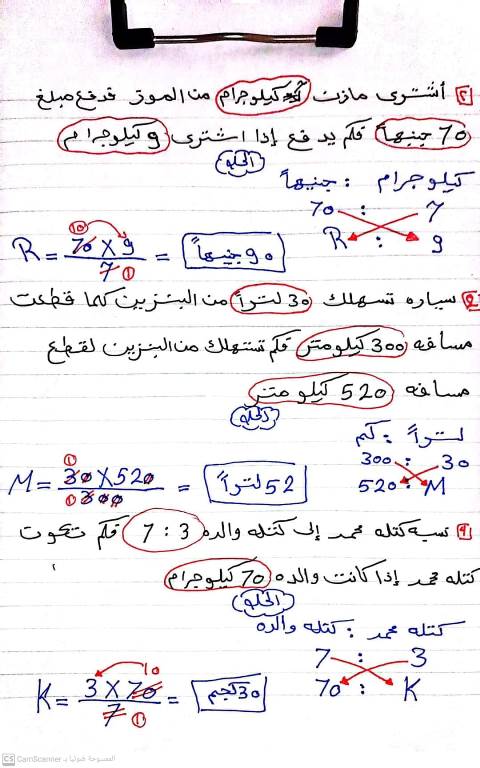 ٢ أشترى مازن 7 كيلوجرام من الموز فدفع مبلغ
70 جنيهاً فكم يدفع إذا اشترى 9 كيلوجرام
الحلو
كيلوجرام : جنيهاً
7 : 70
9 : R
R = 70 × 9 / 7 = 90 جنيهاً
10
1
سياره تسهلك 30 لتراً من البنزين كلما قطعت
مسافه 300 كيلومتر فكم تستهلك من البنزين لقطع
مسافه 520 كيلو متر
الحلو
لتراً : كم
30 : 300
M : 520
M = 30 × 520 / 300 = 52 لتراً
1
1
٤ نسبه كتله محمد إلى كتله والده 3 : 7 فكم تكون
كتله محمد إذا كانت والده 70 كيلوجرام
الحلو
كتله محمد : كتله والده
3 : 7
K : 70
K = 3 × 70 / 7 = 30 كجم
10
1
CS CamScanner الممسوحة ضوئيا بـ